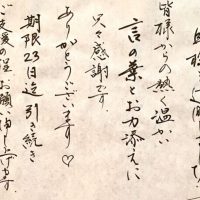 皆様からの熱く温かい
言の葉とお力添えに
只々感謝です。
ありがとうございます♡
期限23日迄引き続き
ご支援の程お願い申し上げます。